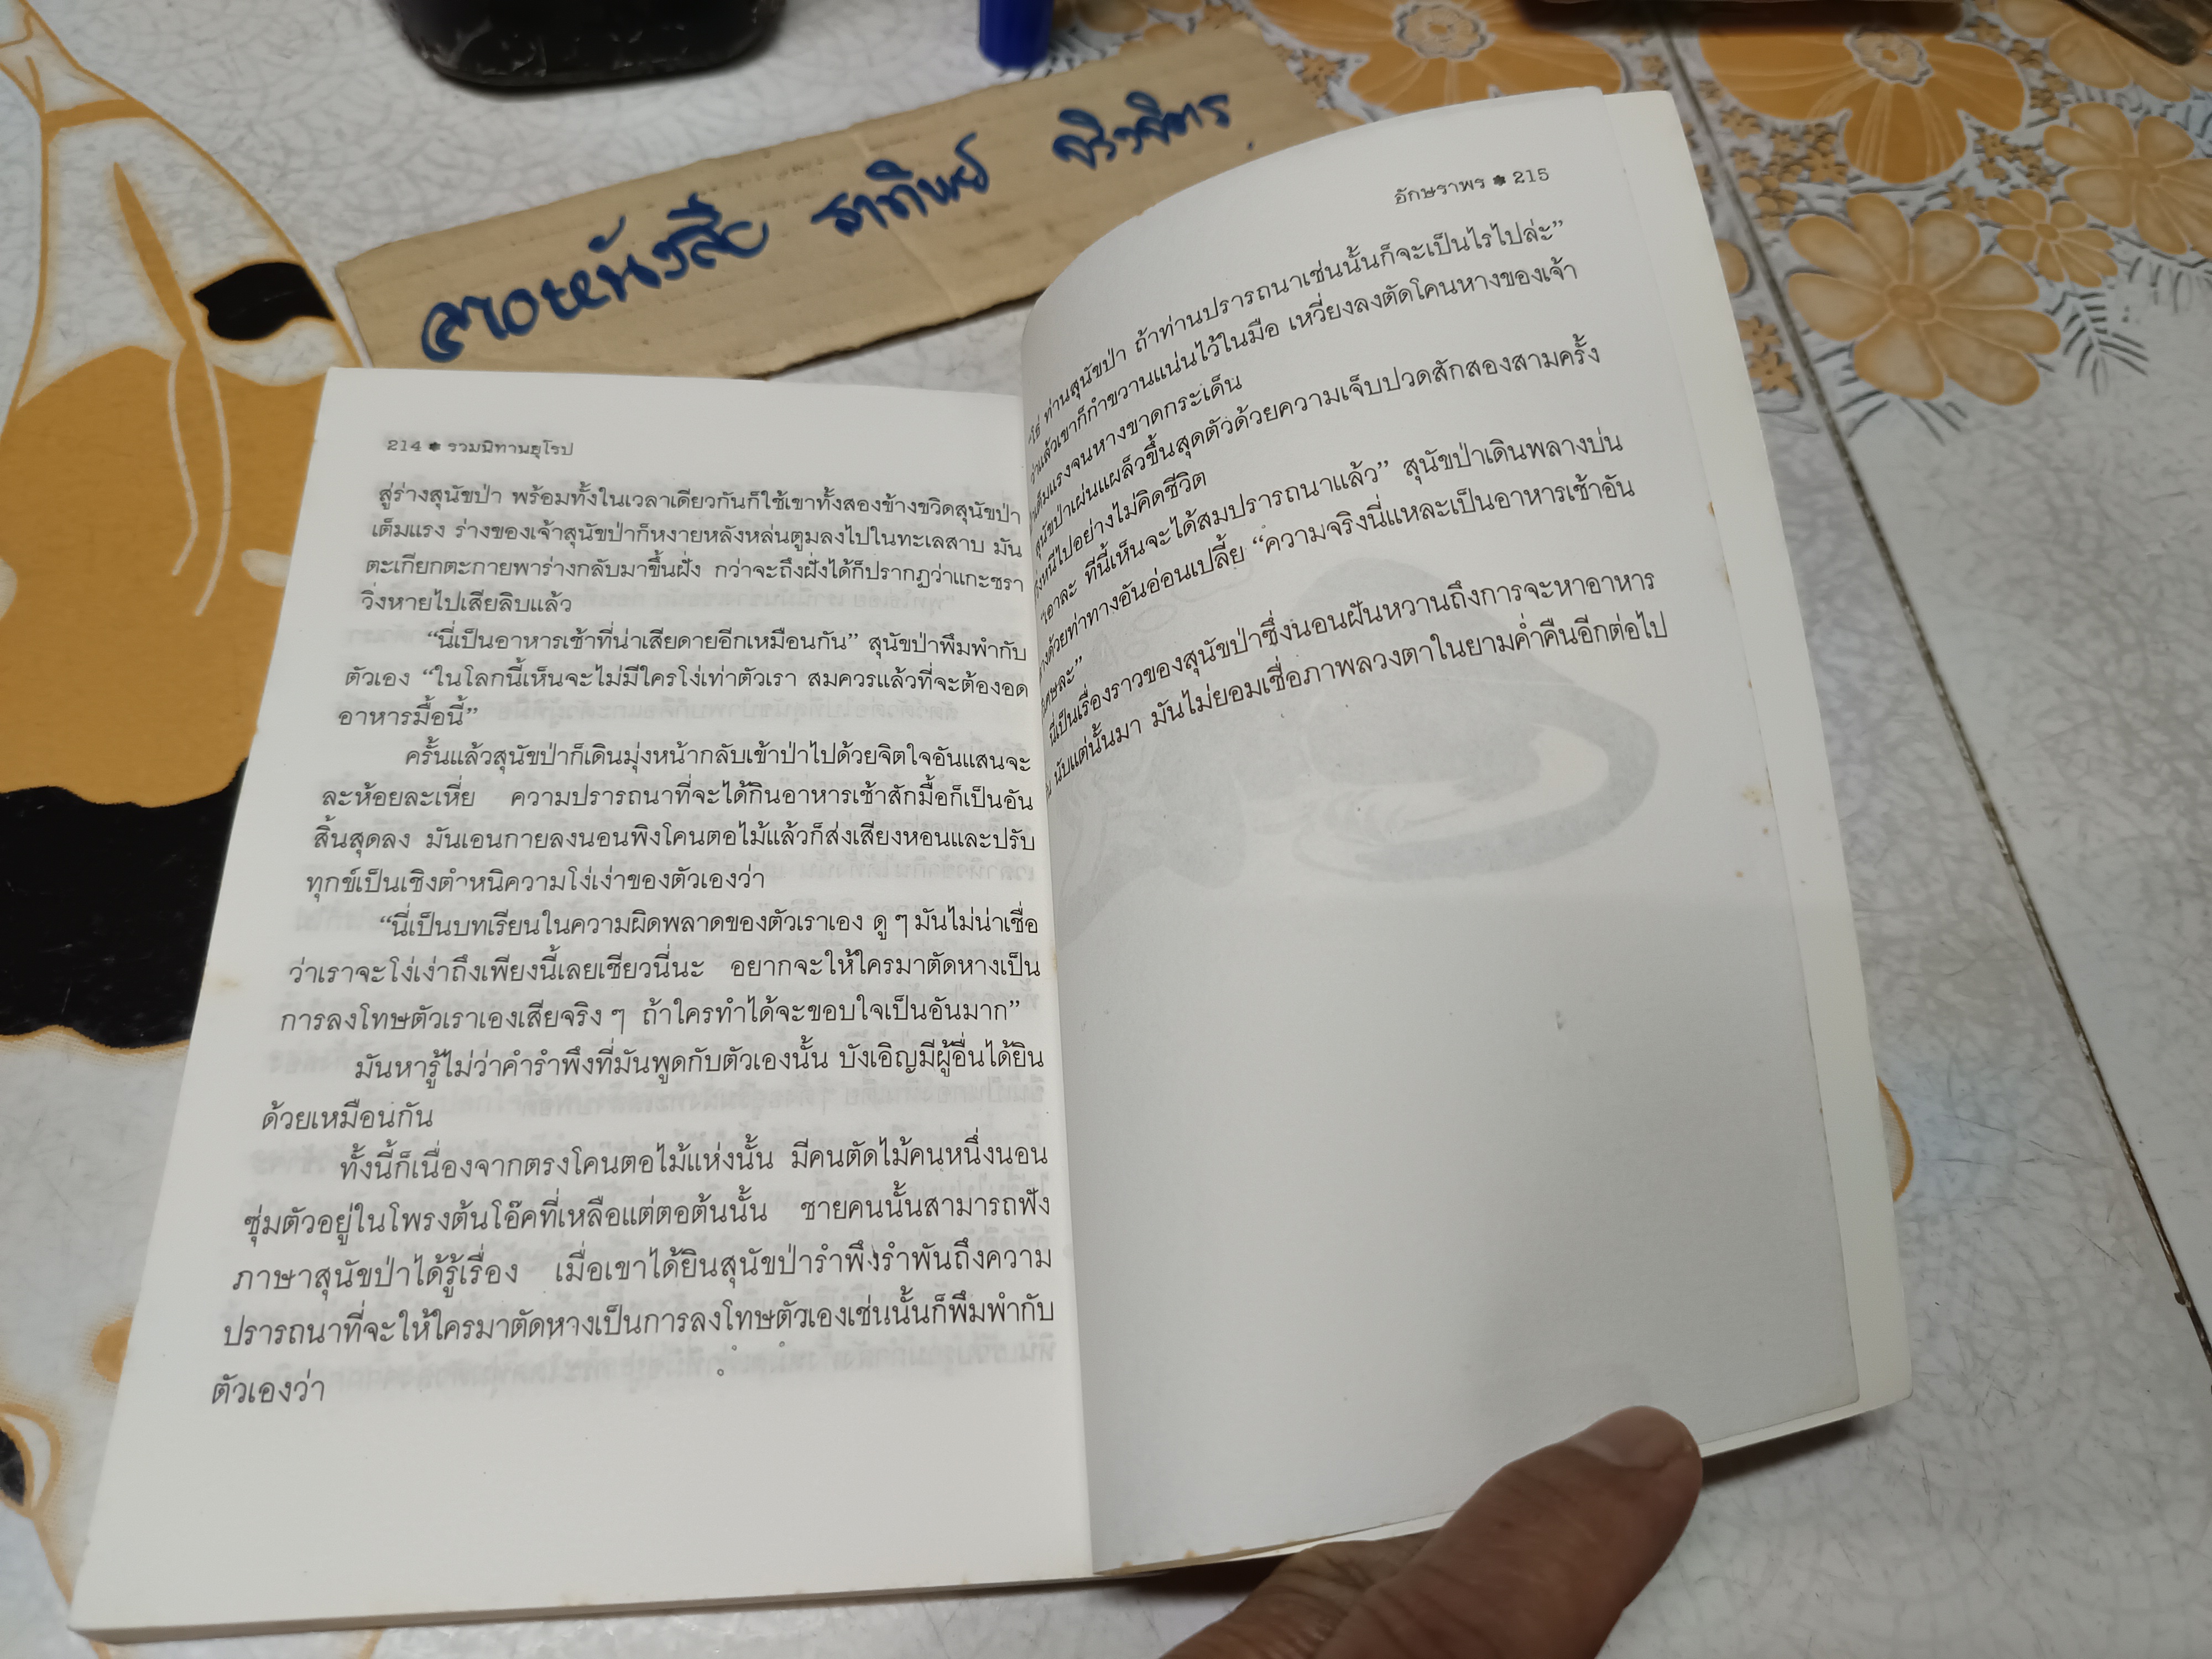 ขายหนังสือ ธาทิพย์ จิรวิจิตร
214 ✽ รวมนิทานยุโรป
สู่ร่างสุนัขป่า พร้อมทั้งในเวลาเดียวกันก็ใช้เขาทั้งสองข้างขวิดสุนัขป่า
เต็มแรง ร่างของเจ้าสุนัขป่าก็หงายหลังหล่นตูมลงไปในทะเลสาบ มัน
ตะเกียกตะกายพาร่างกลับมาขึ้นฝั่ง กว่าจะถึงฝั่งได้ก็ปรากฏว่าแกะชรา
วิ่งหายไปเสียลิบแล้ว
“นี่เป็นอาหารเช้าที่น่าเสียดายอีกเหมือนกัน” สุนัขป่าพึมพำกับ
ตัวเอง “ในโลกนี้เห็นจะไม่มีใครโง่เท่าตัวเรา สมควรแล้วที่จะต้องอด
อาหารมื้อนี้”
ครั้นแล้วสุนัขป่าก็เดินมุ่งหน้ากลับเข้าป่าไปด้วยจิตใจอันแสนจะ
ละห้อยละเหี่ย ความปรารถนาที่จะได้กินอาหารเช้าสักมื้อก็เป็นอัน
สิ้นสุดลง มันเอนกายลงนอนพิงโคนตอไม้แล้วก็ส่งเสียงหอนและปรับ
ทุกข์เป็นเชิงตำหนิความโง่เง่าของตัวเองว่า
“นี่เป็นบทเรียนในความผิดพลาดของตัวเราเอง ดู ๆ มันไม่น่าเชื่อ
ว่าเราจะโง่เง่าถึงเพียงนี้เลยเชียวนี่นะ อยากจะให้ใครมาตัดหางเป็น
การลงโทษตัวเราเองเสียจริง ๆ ถ้าใครทำได้จะขอบใจเป็นอันมาก”
มันหารู้ไม่ว่าคำรำพึงที่มันพูดกับตัวเองนั้น บังเอิญมีผู้อื่นได้ยิน
ด้วยเหมือนกัน
ทั้งนี้ก็เนื่องจากตรงโคนตอไม้แห่งนั้น มีคนตัดไม้คนหนึ่งนอน
ซุ่มตัวอยู่ในโพรงต้นโอ๊คที่เหลือแต่ตอต้นนั้น ชายคนนั้นสามารถฟัง
ภาษาสุนัขป่าได้รู้เรื่อง เมื่อเขาได้ยินสุนัขป่ารำพึงรำพันถึงความ
ปรารถนาที่จะให้ใครมาตัดหางเป็นการลงโทษตัวเองเช่นนั้นก็พึมพำกับ
ตัวเองว่า
อักษราพร ✽ 215
ท่านสุนัขป่า ถ้าท่านปรารถนาเช่นนั้นก็จะเป็นไรไปล่ะ”
ว่าแล้วเขาก็กำขวานแน่นไว้ในมือ เหวี่ยงลงตัดโคนหางของเจ้า
เต็มแรงจนหางขาดกระเด็น
สุนัขป่าเผ่นแผล็วขึ้นสุดตัวด้วยความเจ็บปวดสักสองสามครั้ง
หนีไปอย่างไม่คิดชีวิต
“เอาละ ทีนี้เห็นจะได้สมปรารถนาแล้ว” สุนัขป่าเดินพลางบ่น
ด้วยท่าทางอันอ่อนเปลี้ย “ความจริงนี่แหละเป็นอาหารเช้าอัน
ละ”
นี่เป็นเรื่องราวของสุนัขป่าซึ่งนอนฝันหวานถึงการจะหาอาหาร
นับแต่นั้นมา มันไม่ยอมเชื่อภาพลวงตาในยามค่ำคืนอีกต่อไป